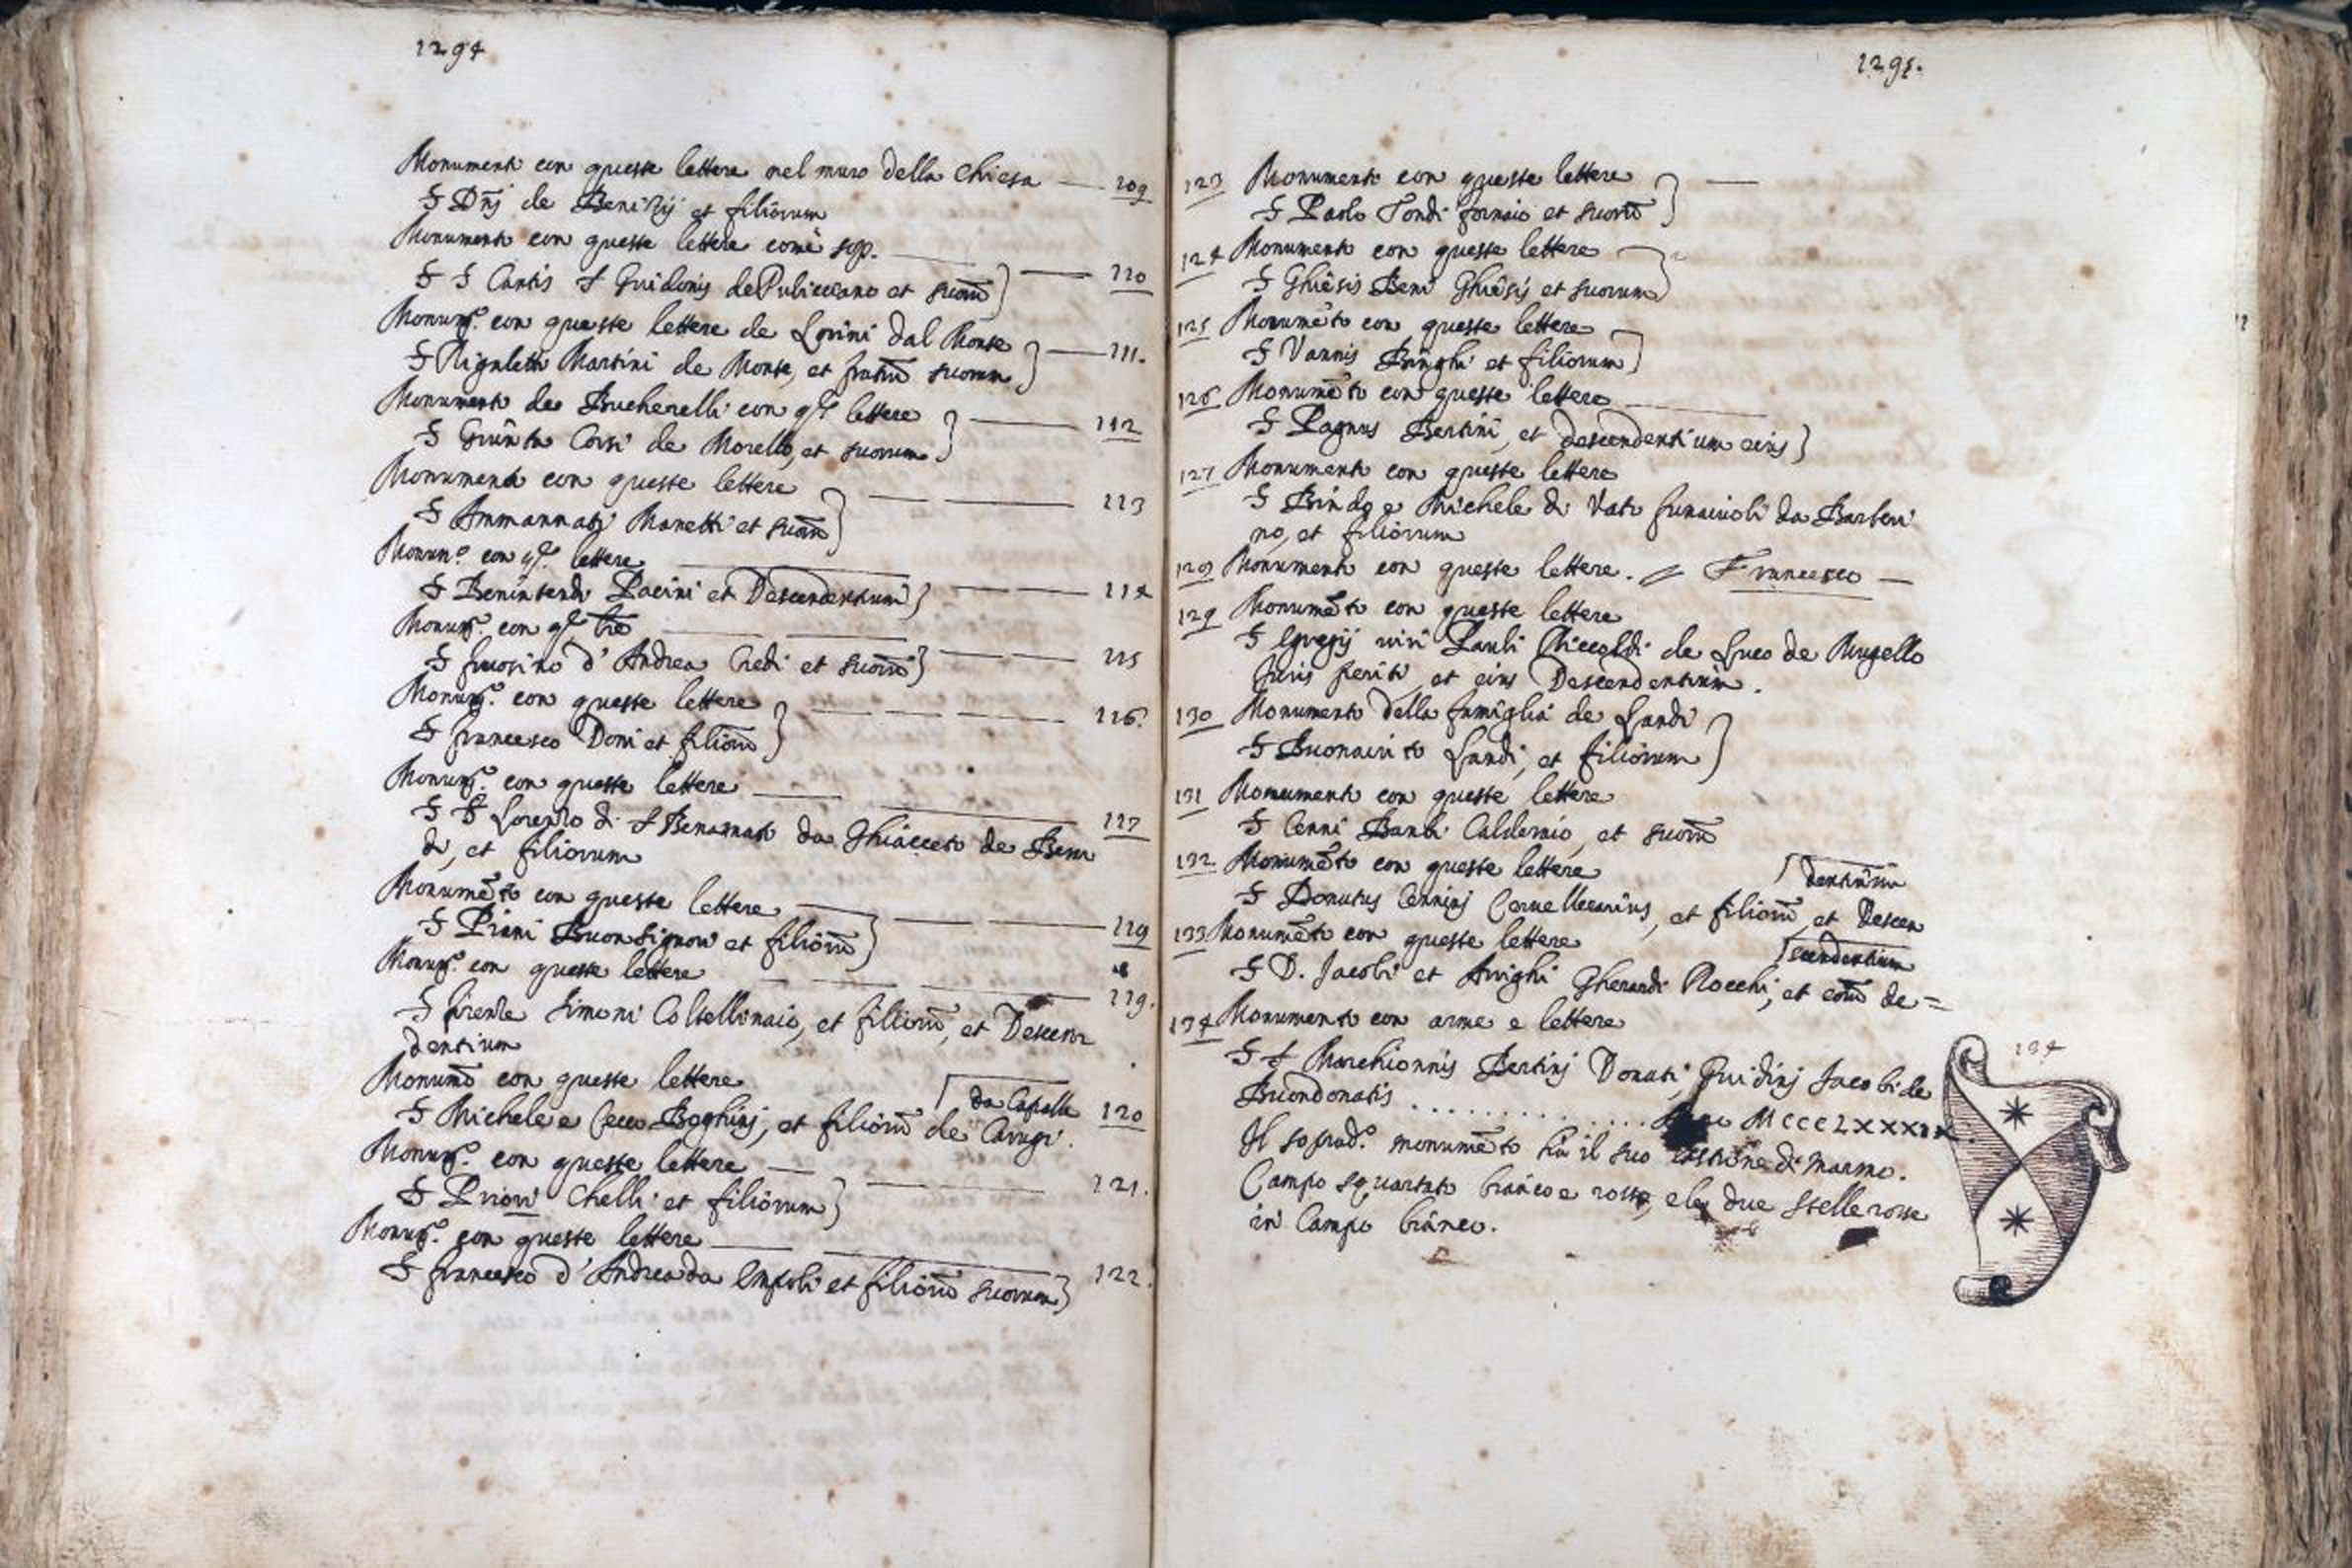 1294
Monumento con queste lettere nel muro della Chiesa 109
S Dñi de Benizij et filiorum
Monumento con queste lettere come sop.
S S Cantis S Guidonis de Pulicciano et suoru̅ 110
Monum.to con queste lettere de Lorini dal Monte
S Rigaletti Martini de Monte, et fratru̅ suorum 111.
Monumento de Bucherelli con q.te lettere
S Giunta Corsi de Morello, et suorum 112
Monumento con queste lettere
S Ammannati Manetti et suoru̅ 113
Monum.o con q.te lettere
S Benintendi Pacini et Descendentium 114
Monum.to con q.te l̅r̅e
S fruosino d'Andrea Credi et suoru̅ 115
Monum.to con queste lettere
S francesco Doni et filioru̅ 116.
Monum.to con queste lettere
S S Lorenzo di S Benamato da Ghiacceto de Ben 117
di, et filiorum
Monume̅to con queste lettere
S Pieri Buonsignori et filioru̅ 119
Monum.to con queste lettere
119.
S firenze Simoni Coltellinaio, et filioru̅, et Descen
dentium
Monum̅o con queste lettere
da Capalle
S Michele e Cecco Boghinj, et filioru̅ de Carugi. 120
Monum.to con queste lettere
S Priori Chelli et filiorum 121.
Monum.to con queste lettere
S francesco d'Andrea da Empoli et filioru̅ suorum 122.
1295.
123 Monumento con queste lettere
S Paolo Tondi fornaio et suoru̅
124 Monumento con queste lettere
S Ghiêsis Beni Ghiêsis et suorum
125 Monume̅to con queste lettere
S Vannis Binghi et filiorum
126 Monume̅to con queste lettere
S Pagnus Bertini, et descendentium eius
127 Monumento con queste lettere
S Bindo e Michele di Vati funaiuoli da Barberi
no, et filiorum
Monumento con queste lettere. Francesco
129 Monume̅to con queste lettere
S Egregij viri Pauli Niccoldi de Luco de Mugello
Juris periti et eius Descendentium.
130 Monumento della famiglia de Landi
S Buonaiuto Landi, et filiorum
131 Monumento con queste lettere
S Cenni Bandi Calderaio, et suoru̅
132. Monume̅to con queste lettere
dentiu̅m
S Donutus Cenninj Cervellerarius, et filioru̅, et Descen
133. Monume̅to con queste lettere
scendentium
S D. Jacobi et Arrighi Gherardi Rocchi, et eoru̅ de=
134 Monumento con arme e lettere
134
S S Marchionnis Bertinj Donati, Guidinj Jacobi de
Buondonatis . . . . . . . . . . . . . . . MCCCLXXXIX.
Il soprad.o monume̅to hà il suo di marmo.
Campo squartato bianco e rosso, e le due stelle rosse
in Campo bianco.